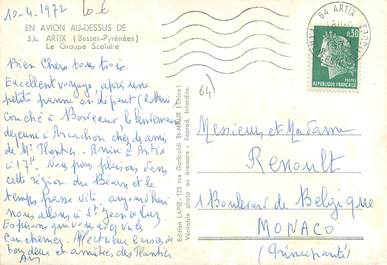 10-4.1972
EN AVION AU-DESSUS DE
ARTIX (Basses-Pyrénées)
Le Groupe Scolaire
Bien Chers tous trois
Excellent voyage, après une
petite panne au départ
couché à Bordeaux, le lendemain
déjeuné à Arcachon chez des amis
de Mr Plantier. Arrivés à Artix
à 17h. Nous nous plaisons dans
cette région du Béarn et le
temps passe vite, aujourd'hui
nous allons à St Jean de Luz
Espérons que vous
Affectueux baisers de
tous deux et amitiés des Plantier
64
Edition LAPIE - 123 rue Garibaldi St-MAUR (Seine)
Véritable photo au bromure - Reprod. Interdite.
64 ARTIX
0,30
POSTES
REPUBLIQUE FRANÇAISE
Messieurs et Madame
Renoult
1 Boulevard de Belgique
MONACO
(Principauté)